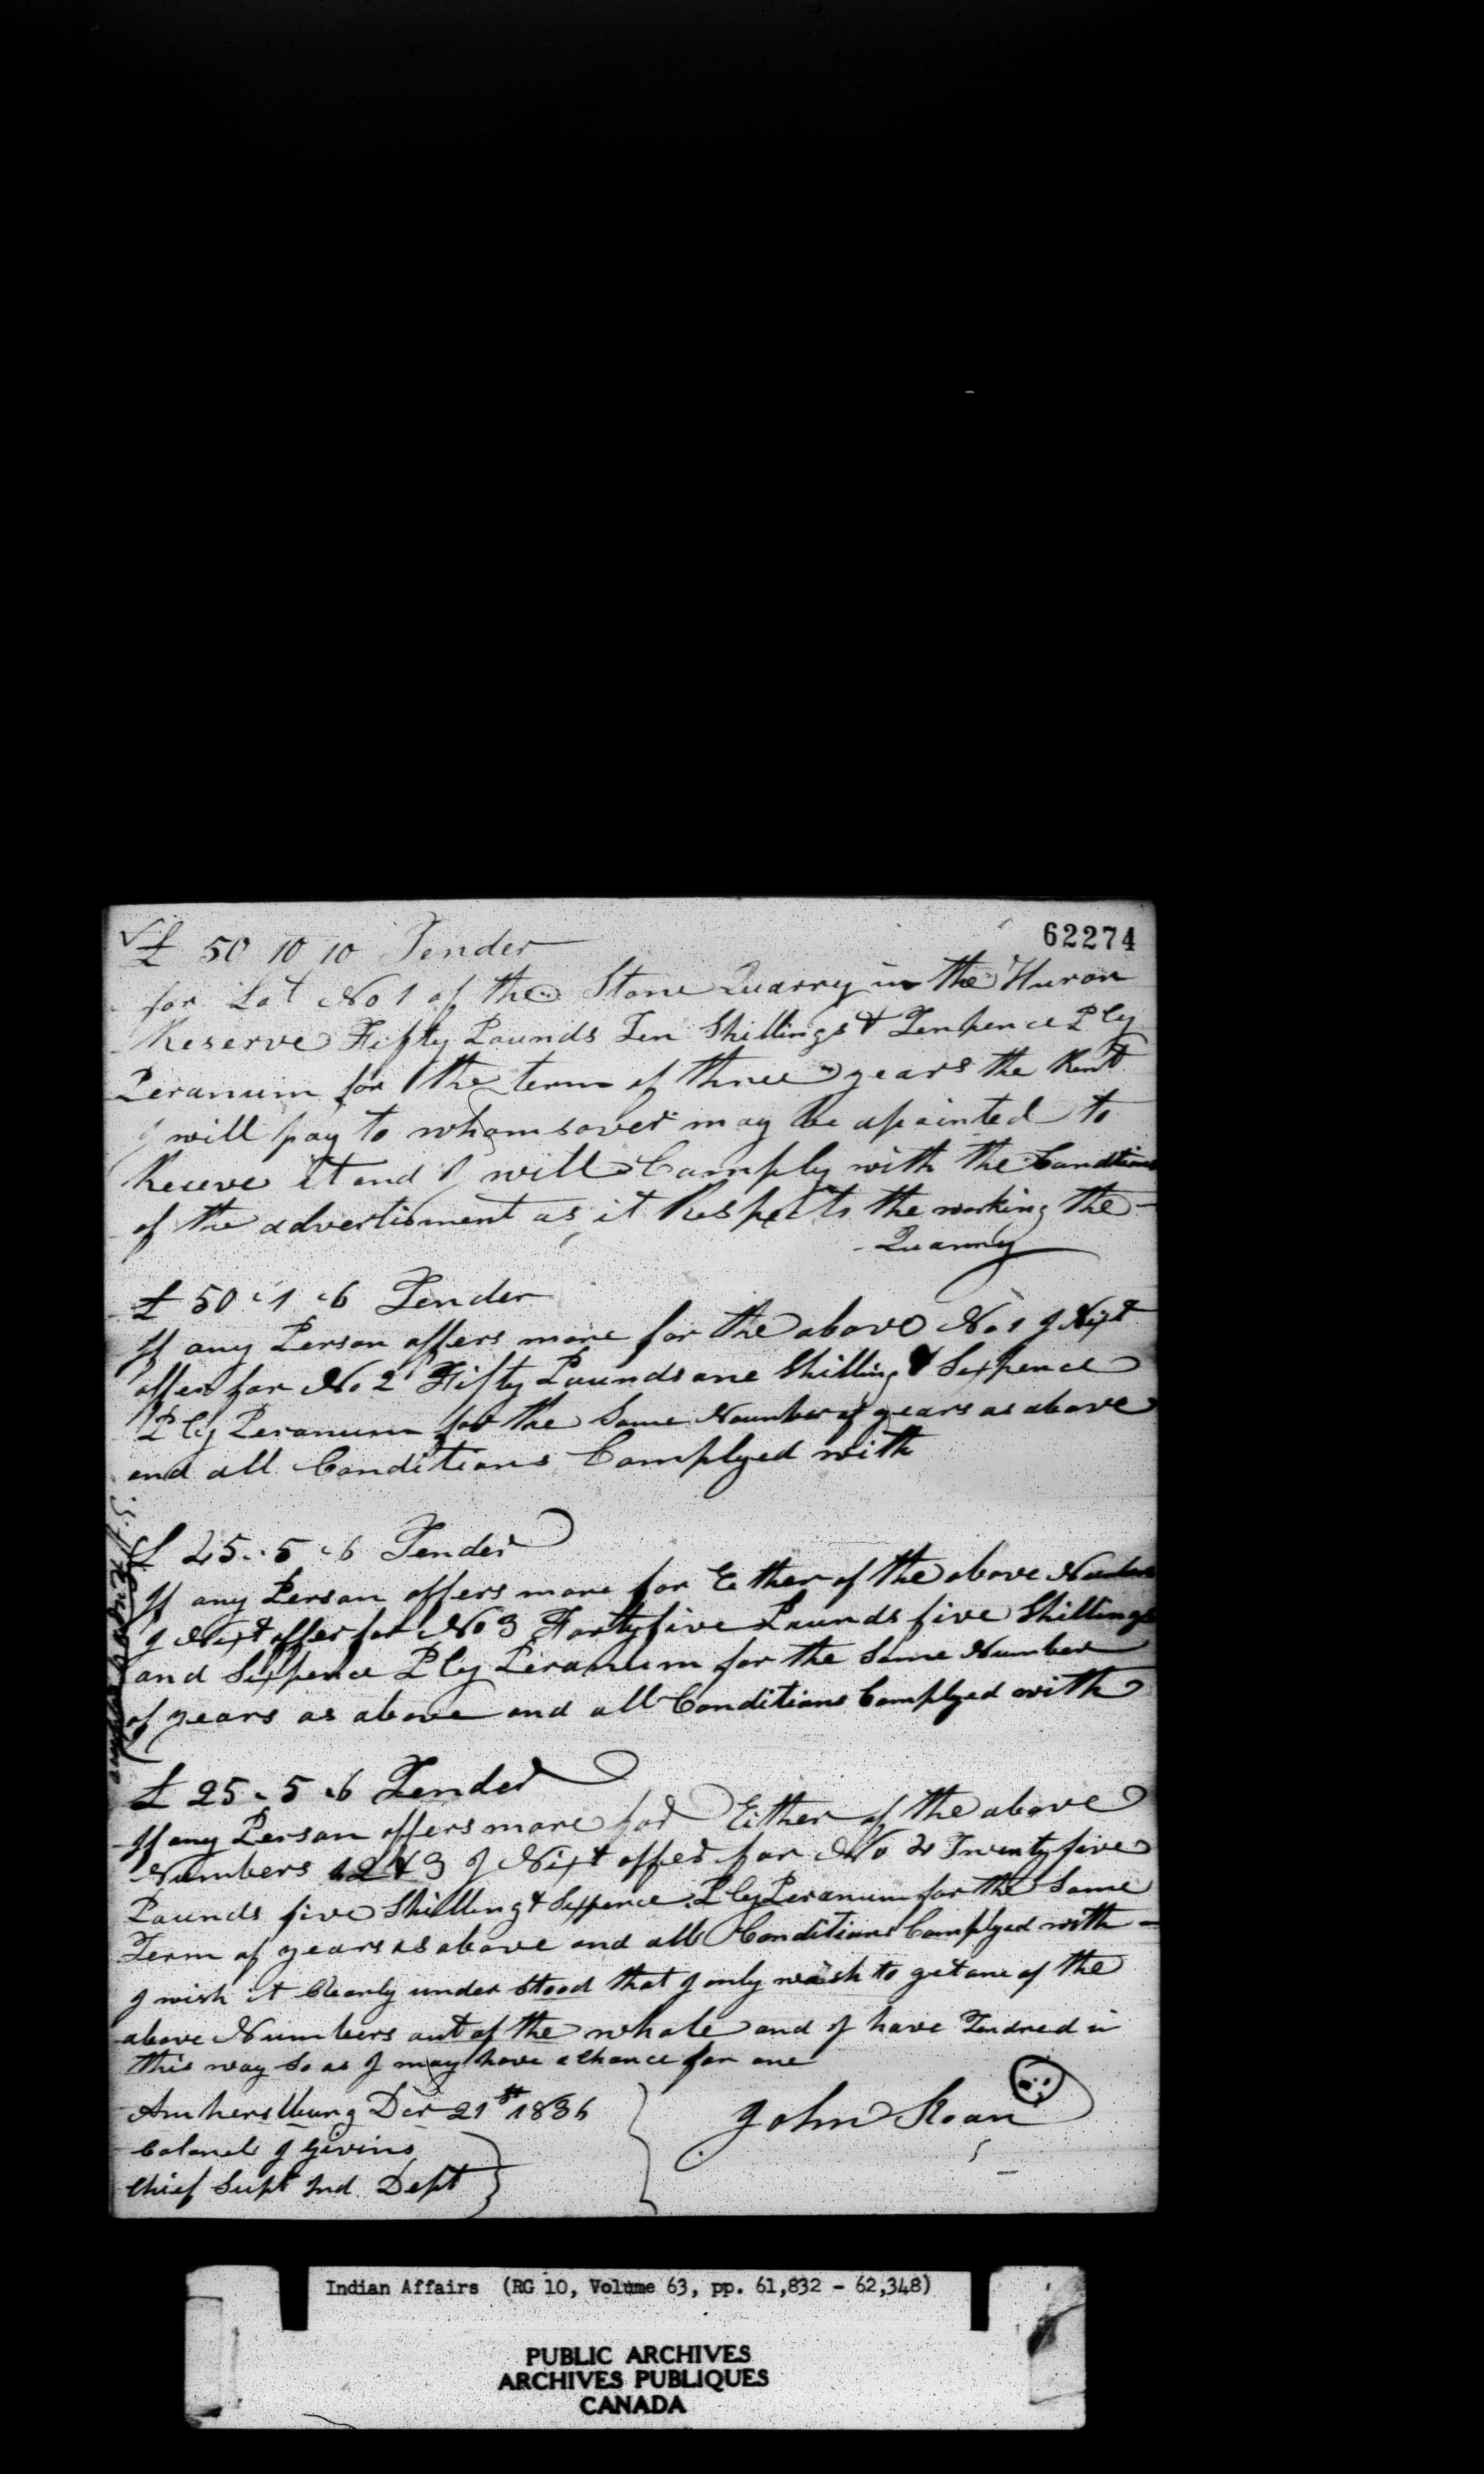 62274
£ 50 10 10 Tender
for Lot No 1 of the Stone Quarry in the Huron
Reserve Fifty Pounds Ten Shillings & Tenpence P Cy
Peranum for the term of three years the Rent
I will pay to whomsover may be apointed to
Receve it and I will Comply with the Condtions
of the advertisment as it Respects the working the
Quarry
£ 50 " 1 " 6 Tender
If any Person offers more for the above No 1 I Nixt
offer for No 2 Fifty Pounds one Shilling & Sixpence
P Cy Peranum for the Same Number of years as above
and all Conditions Complyed with
£ 45 " 5 " 6 Tender
If any Person offers more for Either of the above Numbers
I Nixt offer for No 3 Fortyfive Pounds five Shillings
and Sixpence P Cy Peranum for the Same Number
of years as above and all Conditions Complyed with
£ 25 " 5 " 6 Tender
If any Person offers more for Either of the above
Numbers 1 2 & 3 I Nixt offer for No 4 Twentyfive
Pounds five Shilling & Sixpence P Cy Peranum for the Same
Term of years as above and all Conditions Complyed with
I wish it Clearly under stood that I only wish to get one of the
above Numbers out of the whole and I have Tendred in
this way So as I may have a Chance for one
Amherstburg Dec 21st 1836
John Sloan
Colonel J Givins
Chief Supt Ind Dept
Indian Affairs (RG 10, Volume 63, pp. 61,832 - 62,348)
PUBLIC ARCHIVES
ARCHIVES PUBLIQUES
CANADA